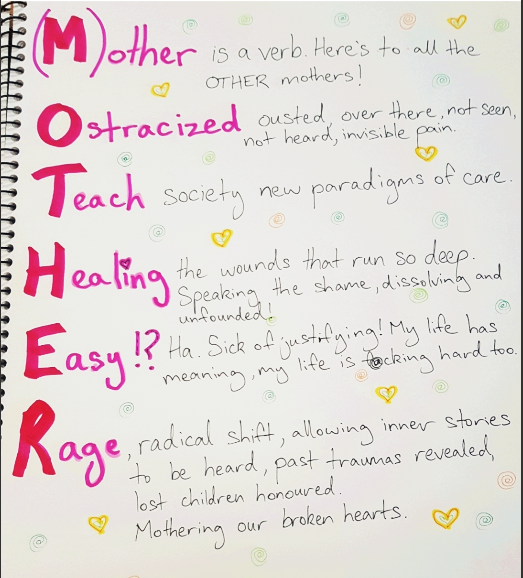 (M)other is a verb. Here's to all the
OTHER mothers!
Ostracized ousted, over there, not seen,
not heard, invisible pain.
Teach society new paradigms of care.
Healing the wounds that run so deep.
Speaking the shame, dissolving and
unfounded!
Easy!? Ha. Sick of justifying! My life has
meaning, my life is fucking hard too.
Rage, radical shift, allowing inner stories
to be heard, past traumas revealed,
lost children honoured.
Mothering our broken hearts.